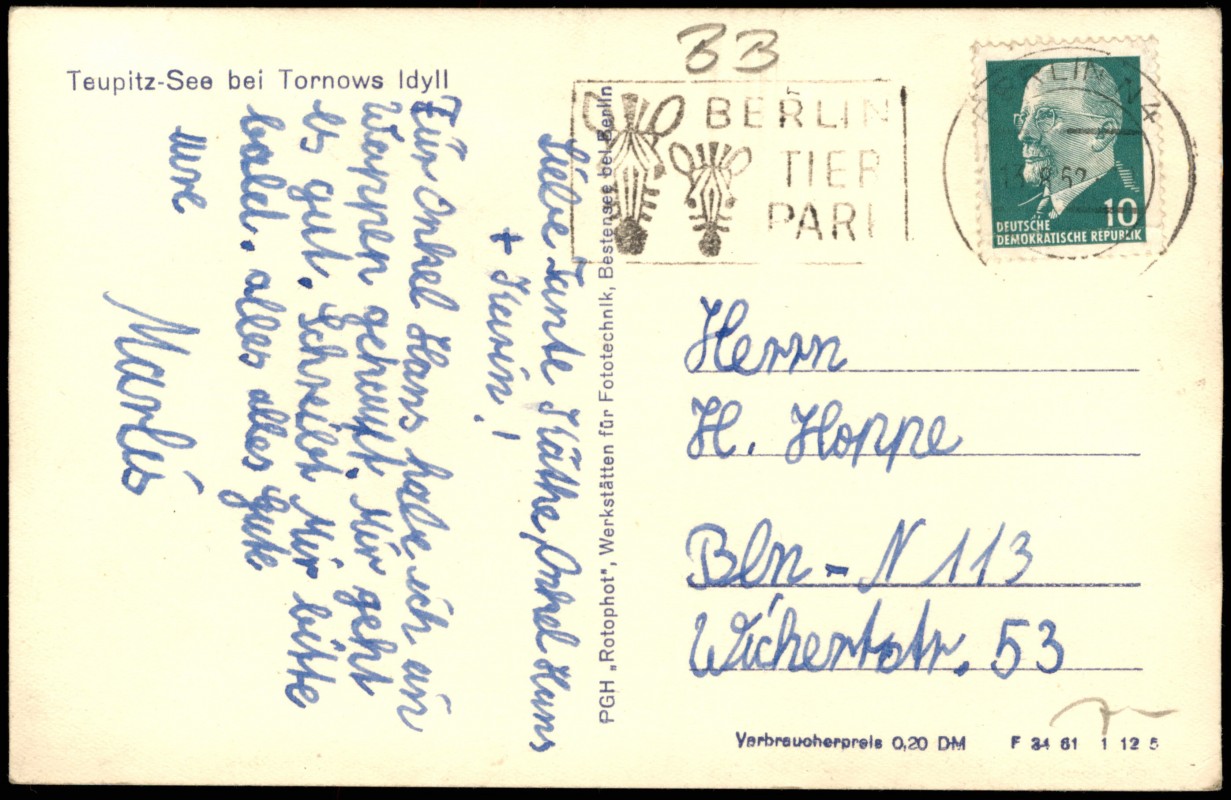 Teupitz-See bei Tornows Idyll
Liebe Tante Käthe, Onkel Hans
+ Karin!
Für Onkel Hans habe ich ein
Wappen gekauft. Mir geht
es gut. Schreibt Mir bitte
bald. alles alles Gute
eure
Marlis
PGH „Rotophot", Werkstätten für Fototechnik, Bestensee bei Berlin
33
BERLIN
TIER
PARK
BERLIN N4
DEUTSCHE
DEMOKRATISCHE REPUBLIK
10
Herrn
H. Hoppe
Bln - N 113
Wichertstr. 53
Verbraucherpreis 0,20 DM F 34 61 1 12 5